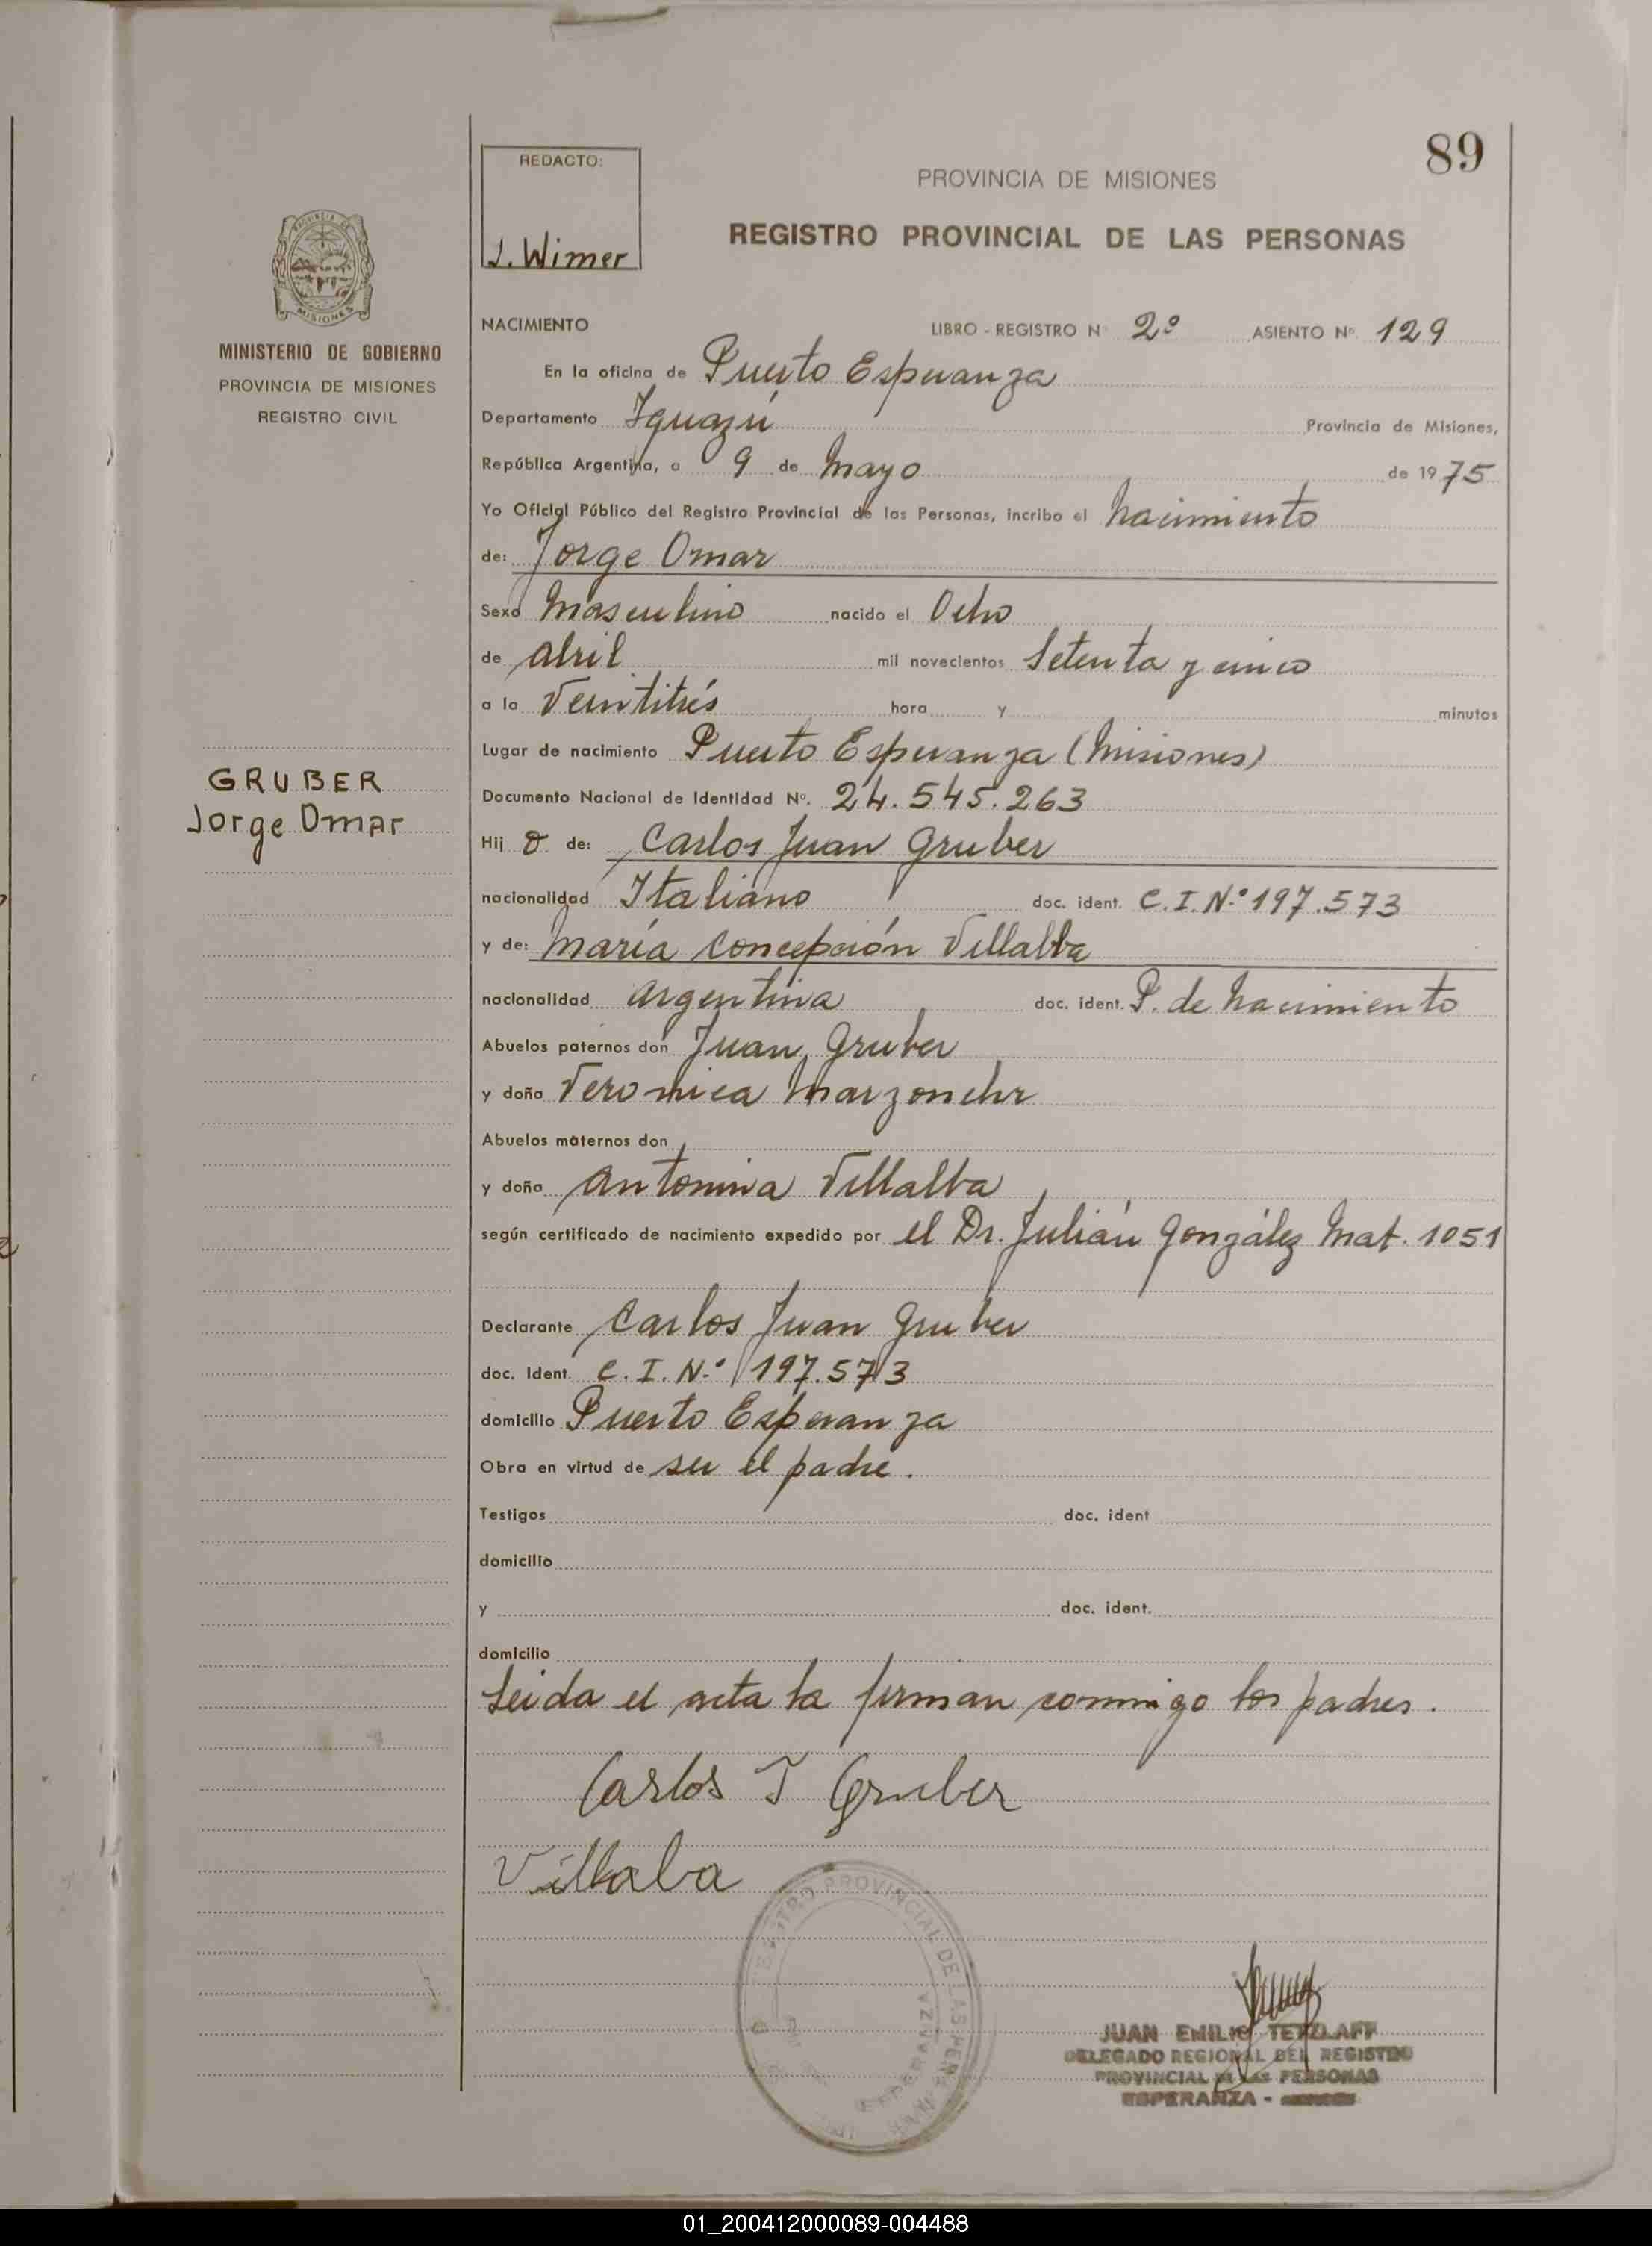 89
REDACTO:
J. Wimer
PROVINCIA DE MISIONES
REGISTRO PROVINCIAL DE LAS PERSONAS
MISIONES
MINISTERIO DE GOBIERNO
PROVINCIA DE MISIONES
REGISTRO CIVIL
GRUBER
Jorge Omar
NACIMIENTO LIBRO - REGISTRO Nº 2º ASIENTO Nº. 129
En la oficina de Puerto Esperanza
Departamento Iguazú Provincia de Misiones,
República Argentina, a 9 de Mayo de 1975
Yo Oficial Público del Registro Provincial de las Personas, incribo el Nacimiento
de: Jorge Omar
Sexo Masculino nacido el Ocho
de Abril mil novecientos Setenta y cinco
a la Veintitrés hora y minutos
Lugar de nacimiento Puerto Esperanza (Misiones)
Documento Nacional de Identidad Nº. 24.545.263
Hij o de: Carlos Juan Gruber
nacionalidad Italiano doc. ident. C.I.Nº 197.573
y de: María Concepción Villalba
nacionalidad Argentina doc. ident. P. de Nacimiento
Abuelos paternos don Juan Gruber
y doña Veronica Marzonehr
Abuelos maternos don
y doña Antonina Villalba
según certificado de nacimiento expedido por el Dr. Julián González Mat. 1051
Declarante Carlos Juan Gruber
doc. Ident. C.I.Nº 197.573
domicilio Puerto Esperanza
Obra en virtud de ser el padre.
Testigos doc. ident
domicilio
y doc. ident.
domicilio
Leida el acta la firman conmigo los padres.
Carlos J Gruber
Villalba
REGISTRO PROVINCIAL DE LAS PERSONAS
ESPERANZA
JUAN EMILIO TETZLAFF
DELEGADO REGIONAL DEL REGISTRO
PROVINCIAL DE LAS PERSONAS
ESPERANZA -
01_200412000089-004488